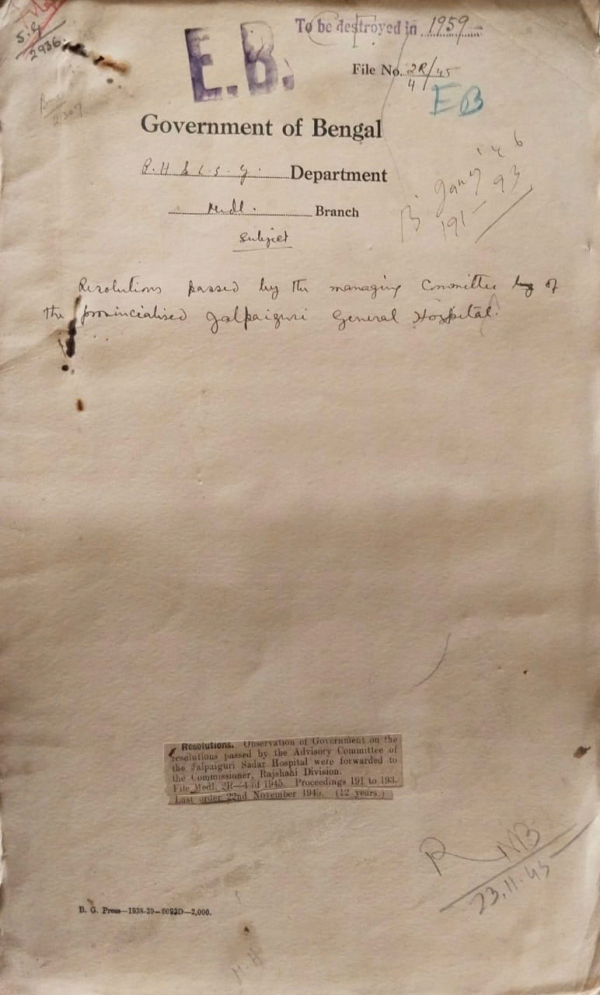 To be destroyed in 1959
S.G
2936.
E.B.
File No. 2R/45
4
EB
Government of Bengal
P.H & L.S.G. Department
B. Jany '46
Medl. Branch
191 – 93
Subject
Resolutions passed by the managing Committee by of
the provincialised Jalpaiguri General Hospital.
Resolutions. Observation of Government on the
resolutions passed by the Advisory Committee of
the Jalpaiguri Sadar Hospital were forwarded to
the Commissioner, Rajshahi Division.
File Medl. 2R—4 of 1945. Proceedings 191 to 193.
Last order 22nd November 1945. (12 years.)
R NB
23.11.45
B. G. Press—1938-39—6092D—2,000.